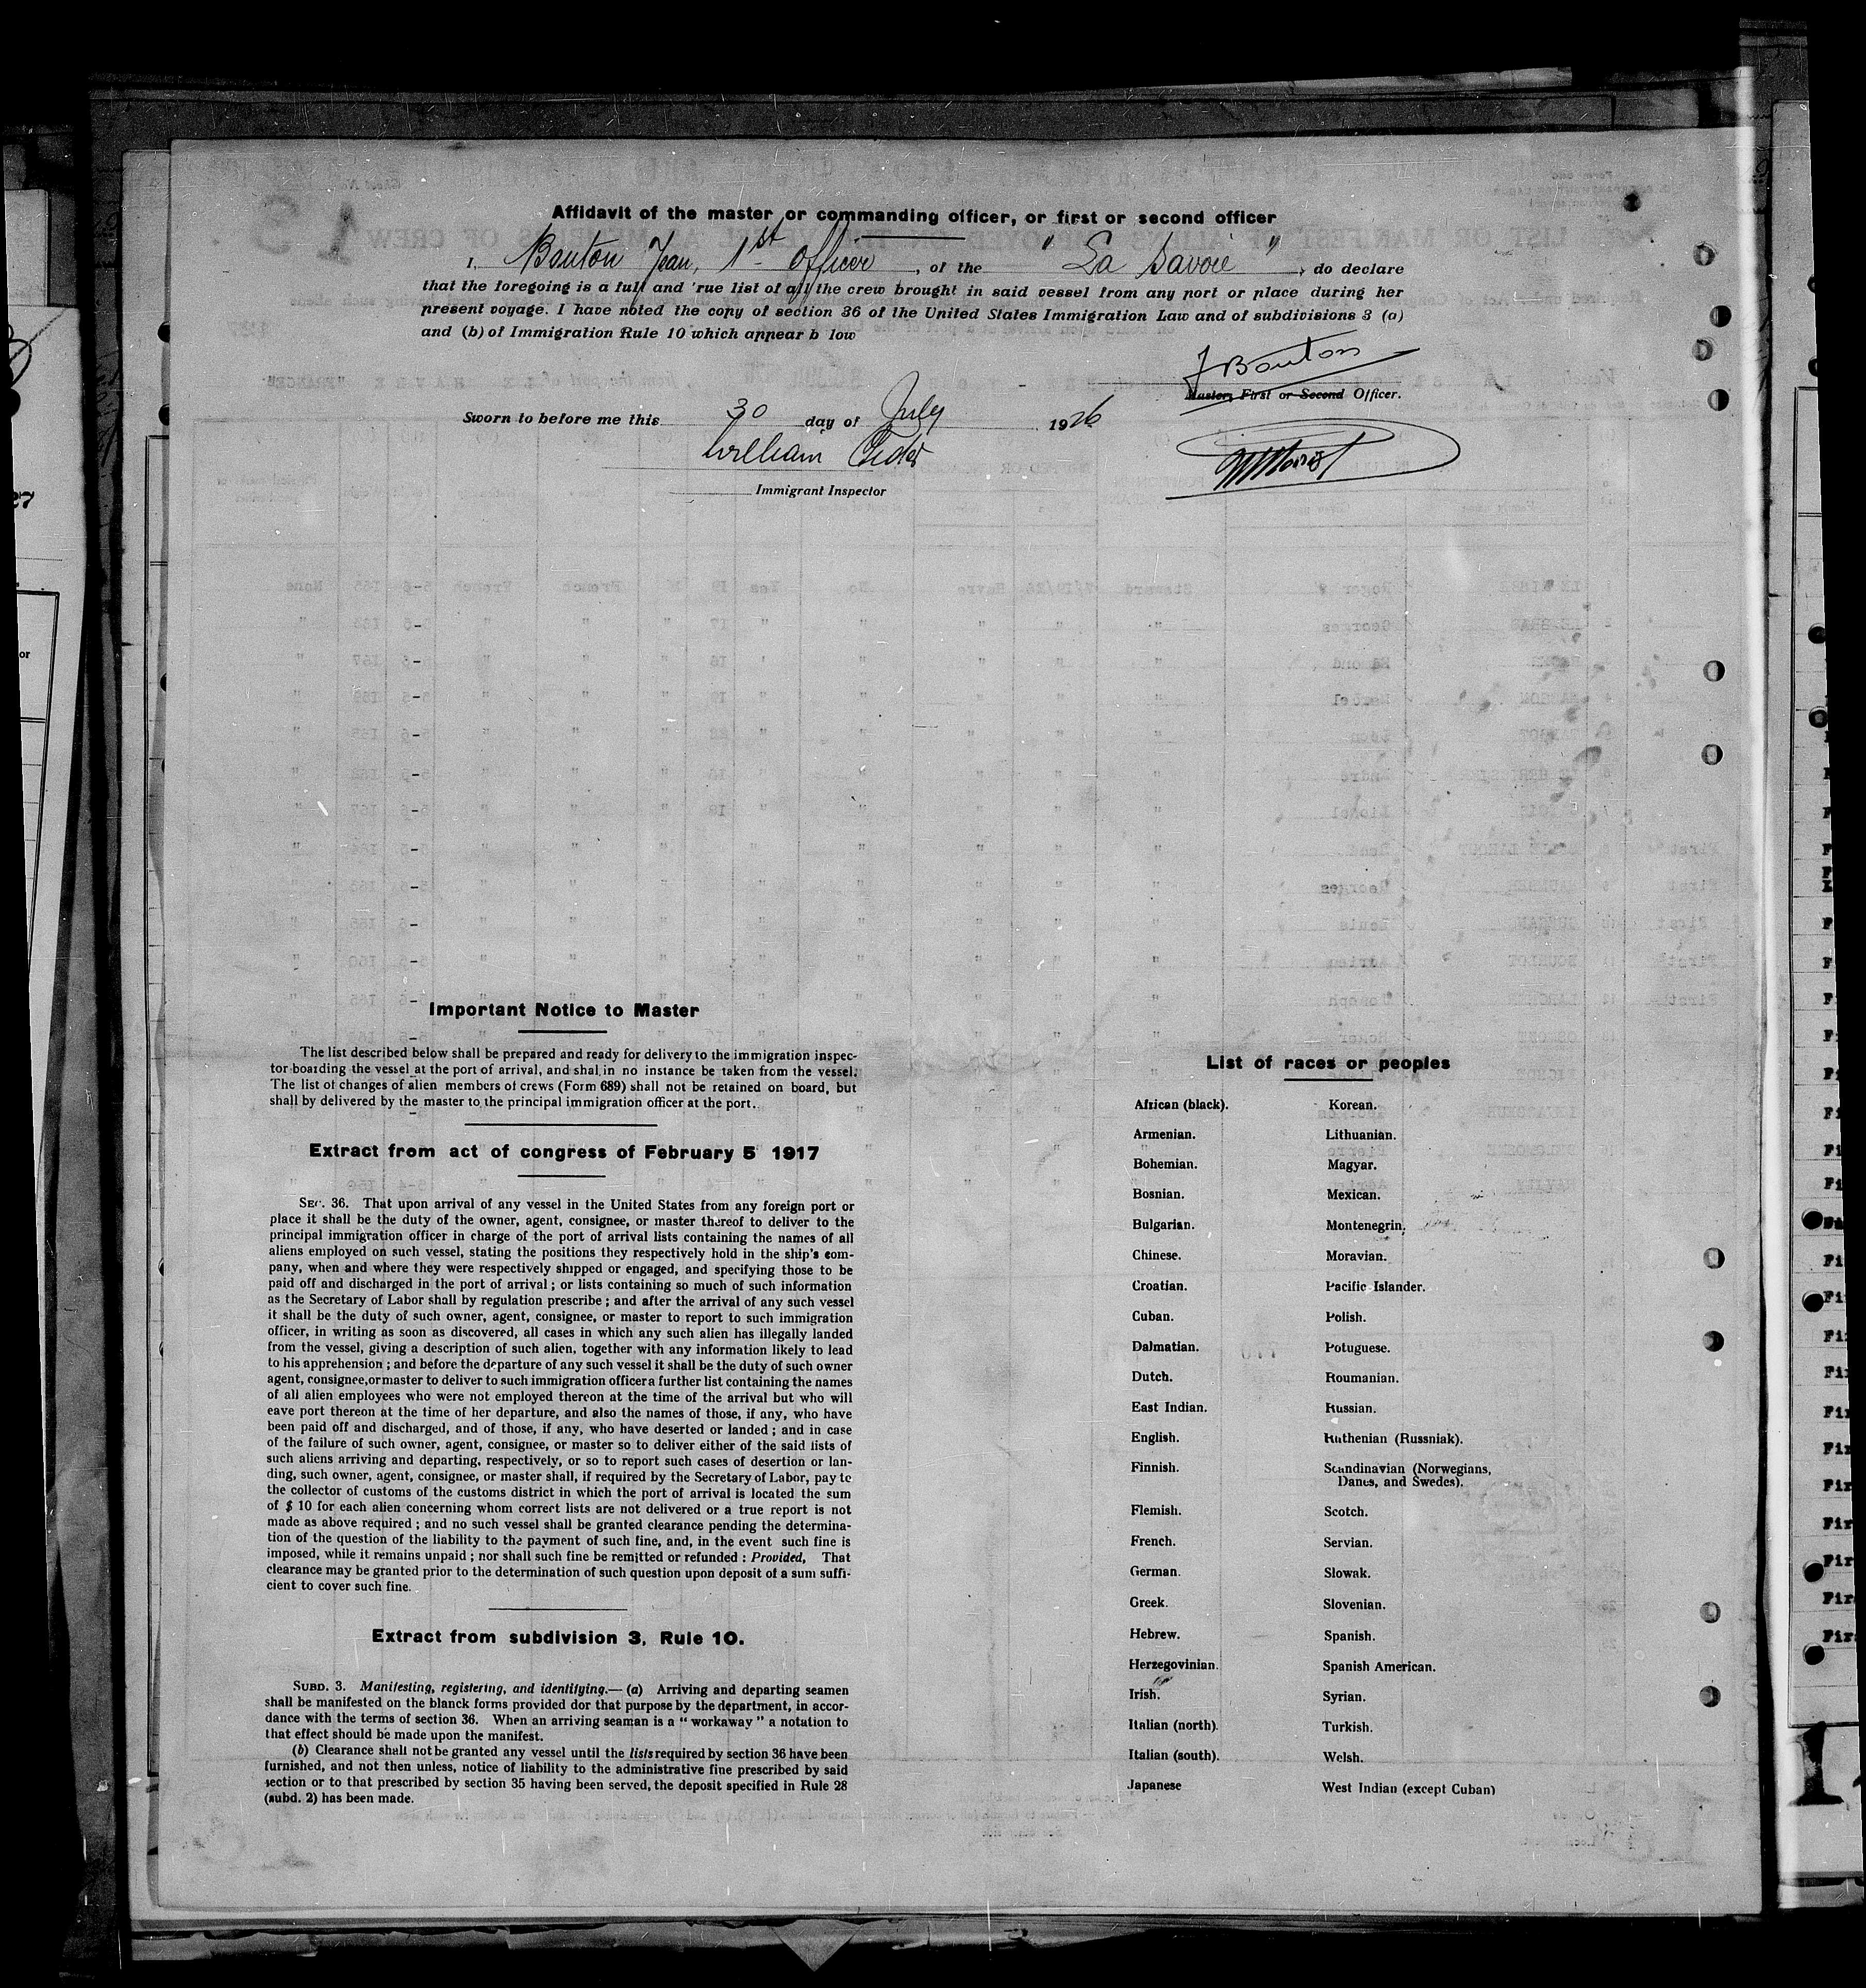 Affidavit of the master or commanding officer, or first or second officer
I, Bouton Jean, 1st officer, of the "La Savoie", do declare
that the foregoing is a full and 'rue list of all the crew brought in said vessel from any port or place during her
present voyage. I have noted the copy of section 36 of the United States Immigration Law and of subdivisions 3 (a)
and (b) of Immigration Rule 10 which appear b low
J Bouton
Master, First or Second Officer.
Sworn to before me this 30 day of July 1926
William
Immigrant Inspector
Important Notice to Master
The list described below shall be prepared and ready for delivery to the immigration inspec-
tor boarding the vessel at the port of arrival, and shal in no instance be taken from the vessel.
The list of changes of alien members of crews (Form 689) shall not be retained on board, but
shall by delivered by the master to the principal immigration officer at the port.
Extract from act of congress of February 5 1917
SEC. 36. That upon arrival of any vessel in the United States from any foreign port or
place it shall be the duty of the owner, agent, consignee, or master thereof to deliver to the
principal immigration officer in charge of the port of arrival lists containing the names of all
aliens employed on such vessel, stating the positions they respectively hold in the ship's com-
pany, when and where they were respectively shipped or engaged, and specifying those to be
paid off and discharged in the port of arrival ; or lists containing so much of such information
as the Secretary of Labor shall by regulation prescribe ; and after the arrival of any such vessel
it shall be the duty of such owner, agent, consignee, or master to report to such immigration
officer, in writing as soon as discovered, all cases in which any such alien has illegally landed
from the vessel, giving a description of such alien, together with any information likely to lead
to his apprehension ; and before the departure of any such vessel it shall be the duty of such owner
agent, consignee,ormaster to deliver to such immigration officer a further list containing the names
of all alien employees who were not employed thereon at the time of the arrival but who will
eave port thereon at the time of her departure, and also the names of those, if any, who have
been paid off and discharged, and of those, if any, who have deserted or landed ; and in case
of the failure of such owner, agent, consignee, or master so to deliver either of the said lists of
such aliens arriving and departing, respectively, or so to report such cases of desertion or lan-
ding, such owner, agent, consignee, or master shall, if required by the Secretary of Labor, pay tc
the collector of customs of the customs district in which the port of arrival is located the sum
of $ 10 for each alien concerning whom correct lists are not delivered or a true report is not
made as above required ; and no such vessel shall be granted clearance pending the determina-
tion of the question of the liability to the payment of such fine, and, in the event such fine is
imposed, while it remains unpaid ; nor shall such fine be remitted or refunded : Provided, That
clearance may be granted prior to the determination of such question upon deposit of a sum suffi-
cient to cover such fine.
Extract from subdivision 3, Rule 10.
SUBD. 3. Manifesting, registering, and identifying.— (a) Arriving and departing seamen
shall be manifested on the blanck forms provided dor that purpose by the department, in accor-
dance with the terms of section 36. When an arriving seaman is a " workaway " a notation to
that effect should be made upon the manifest.
(b) Clearance shall not be granted any vessel until the lists required by section 36 have been
furnished, and not then unless, notice of liability to the administrative fine prescribed by said
section or to that prescribed by section 35 having been served, the deposit specified in Rule 28
(subd. 2) has been made.
List of races or peoples
African (black).
Armenian.
Bohemian.
Bosnian.
Bulgarian.
Chinese.
Croatian.
Cuban.
Dalmatian.
Dutch.
East Indian.
English.
Finnish.
Flemish.
French.
German.
Greek.
Hebrew.
Herzegovinian.
Irish.
Italian (north).
Italian (south).
Japanese
Korean.
Lithuanian.
Magyar.
Mexican.
Montenegrin.
Moravian.
Pacific Islander.
Polish.
Potuguese.
Roumanian.
Russian.
Ruthenian (Russniak).
Scandinavian (Norwegians,
Danes, and Swedes).
Scotch.
Servian.
Slowak.
Slovenian.
Spanish.
Spanish American.
Syrian.
Turkish.
Welsh.
West Indian (except Cuban)